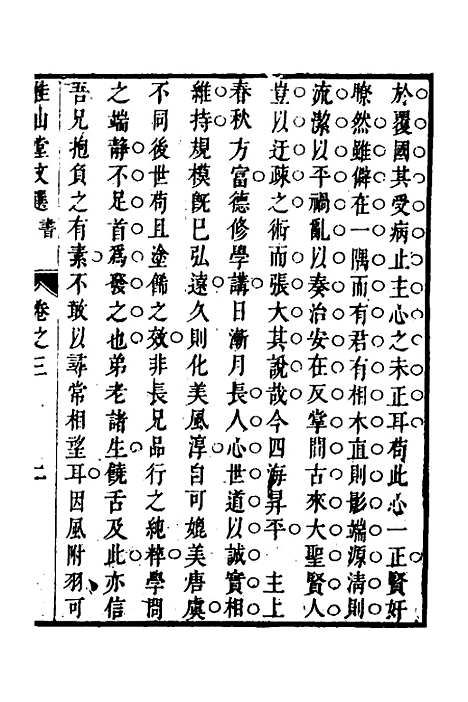 於覆國其受病止主心之未正耳苟此心一正賢奸
瞭然雖僻在一隅而有君有相木直則影端源清則
流潔以平禍亂以奏治安在反掌間古來大聖賢人
豈以迂疎之術而張大其說哉今四海昇平　主上
春秋方富德修學講日漸月長人心世道以誠實相
維持規模旣已弘遠久則化美風淳自可媲美唐虞
不同後世苟且塗飾之效非長兄品行之純粹學問
之端靜不足首爲發之也弟老諸生饒舌及此亦信
吾兄抱負之有素不敢以尋常相望耳因風附羽可
桂山堂文選　書　卷之三